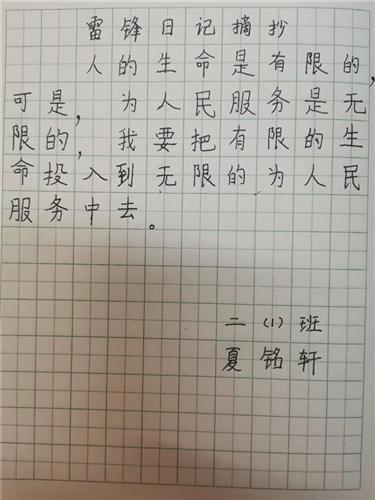 雷锋日记摘抄
人的生命是有限的,
可是,为人民服务是无
限的,我要把有限的生
命投入到无限的为人民
服务中去。
二(1)班
夏铭轩